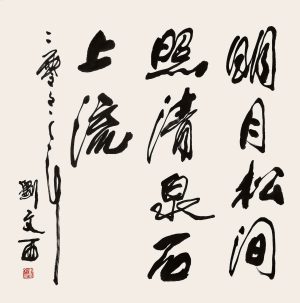 明月松间
照清泉石
上流
二零一一年
劉文西